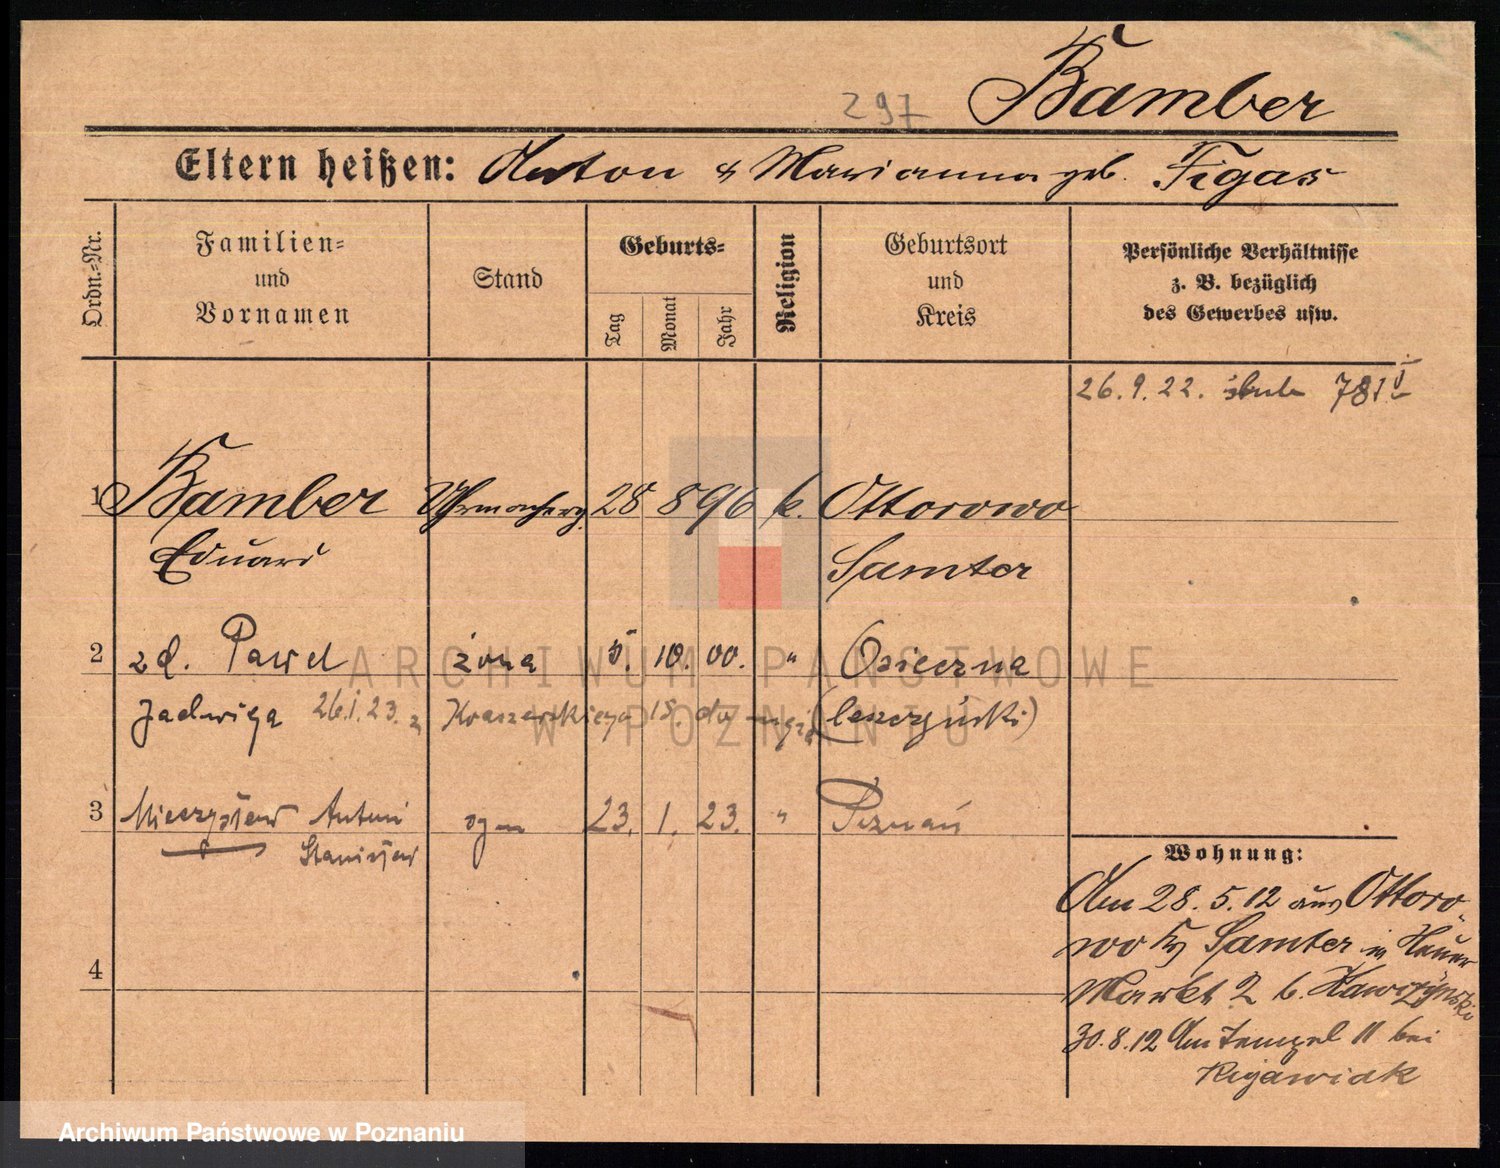 Bamber
297
Eltern heißen: Anton & Marianna geb. Figas
Ordn.-Nr.
Familien-
und
Vornamen
Stand
Geburts-
Tag
Monat
Jahr
Religion
Geburtsort
und
Kreis
Persönliche Verhältnisse
z. B. bezüglich
des Gewerbes usw.
26. 9. 22.
1 Bamber Uhrmacherg. 28 8 96 k. Ottorowo
Eduard Samter
2 zd. Paweł żona 5. 10. 00. " Osieczna
Jadwiga 26.1.23. Kraszewskiego 18.
3 Mieczysław Antoni syn 23. 1. 23. " Poznań
Stanisław
4
Wohnung:
Am 28. 5. 12 aus Ottoro-
wo Samter
Markt 2 b.
30. 8. 12 Am Tempel 11 bei
ARCHIWUM PAŃSTWOWE
W POZNANIU
Archiwum Państwowe w Poznaniu